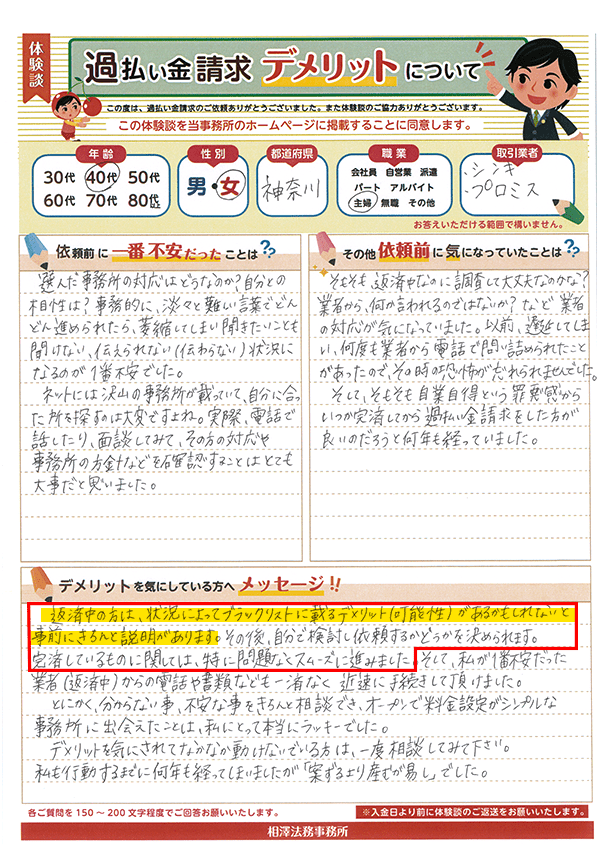 体験談
過払い金請求 デメリットについて
この度は、過払い金請求のご依頼ありがとうございました。また体験談のご協力ありがとうございます。
この体験談を当事務所のホームページに掲載することに同意します。
年齢
30代 40代 50代
60代 70代 80歳以上
性別
男・女
都道府県
神奈川
職業
会社員 自営業 派遣
パート アルバイト
主婦 無職 その他
取引業者
・シンキ
・プロミス
お答えいただける範囲で構いません。
依頼前に一番不安だったことは??
選んだ事務所の対応はどうなのか?自分との
相性は?事務的に、淡々と難しい言葉でどん
どん進められたら、萎縮してしまい聞きたいことも
聞けない、伝えられない(伝わらない)状況に
なるのが1番不安でした。
ネットには沢山の事務所が載っていて、自分に合っ
た所を探すのは大変ですよね。実際、電話で
話したり、面談してみて、その方の対応や
事務所の方針などを確認することはとても
大事だと思いました。
その他依頼前に気になっていたことは??
そもそも返済中なのに調査して大丈夫なのかな?
業者から、何か言われるのではないか?など業者
の対応が気になっていました。以前、遅延してしま
い、何度も業者から電話で問い詰められたこと
があったので、その時の恐怖が忘れられませんでした。
そして、そもそも自業自得という罪悪感から
いつか完済してから過払い金請求をした方が
良いのだろうと何年も経っていました。
デメリットを気にしている方へ メッセージ!!
返済中の方は、状況によってブラックリストに載るデメリット(可能性)があるかもしれないと
事前にきちんと説明があります。その後、自分で検討し依頼するかどうかを決められます。
完済しているものに関しては、特に問題なくスムーズに進みました。そして、私が1番不安だった
業者(返済中)からの電話や書類なども一済なく迅速に手続きして頂けました。
とにかく、分からない事、不安な事をきちんと相談でき、オープンで料金設定がシンプルな
事務所に出会えたことは、私にとって本当にラッキーでした。
デメリットを気にされてなかなか動けないでいる方は、一度相談してみて下さい。
私も行動するまでに何年も経ってしまいましたが「案ずるより産むが易し」でした。
各ご質問を150～200文字程度でご回答お願いいたします。
※入金日より前に体験談のご返送をお願いいたします。
相澤法務事務所